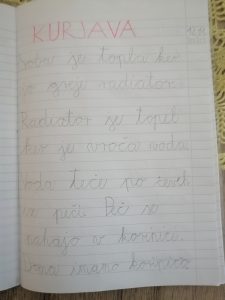 KURJAVA
Soba je topla ker
jo greje radiator.
Radiator je topel
ker je vroča voda.
Voda teče po ceveh
iz peči. Peč se
nahaja v kotlnici.
Doma imamo